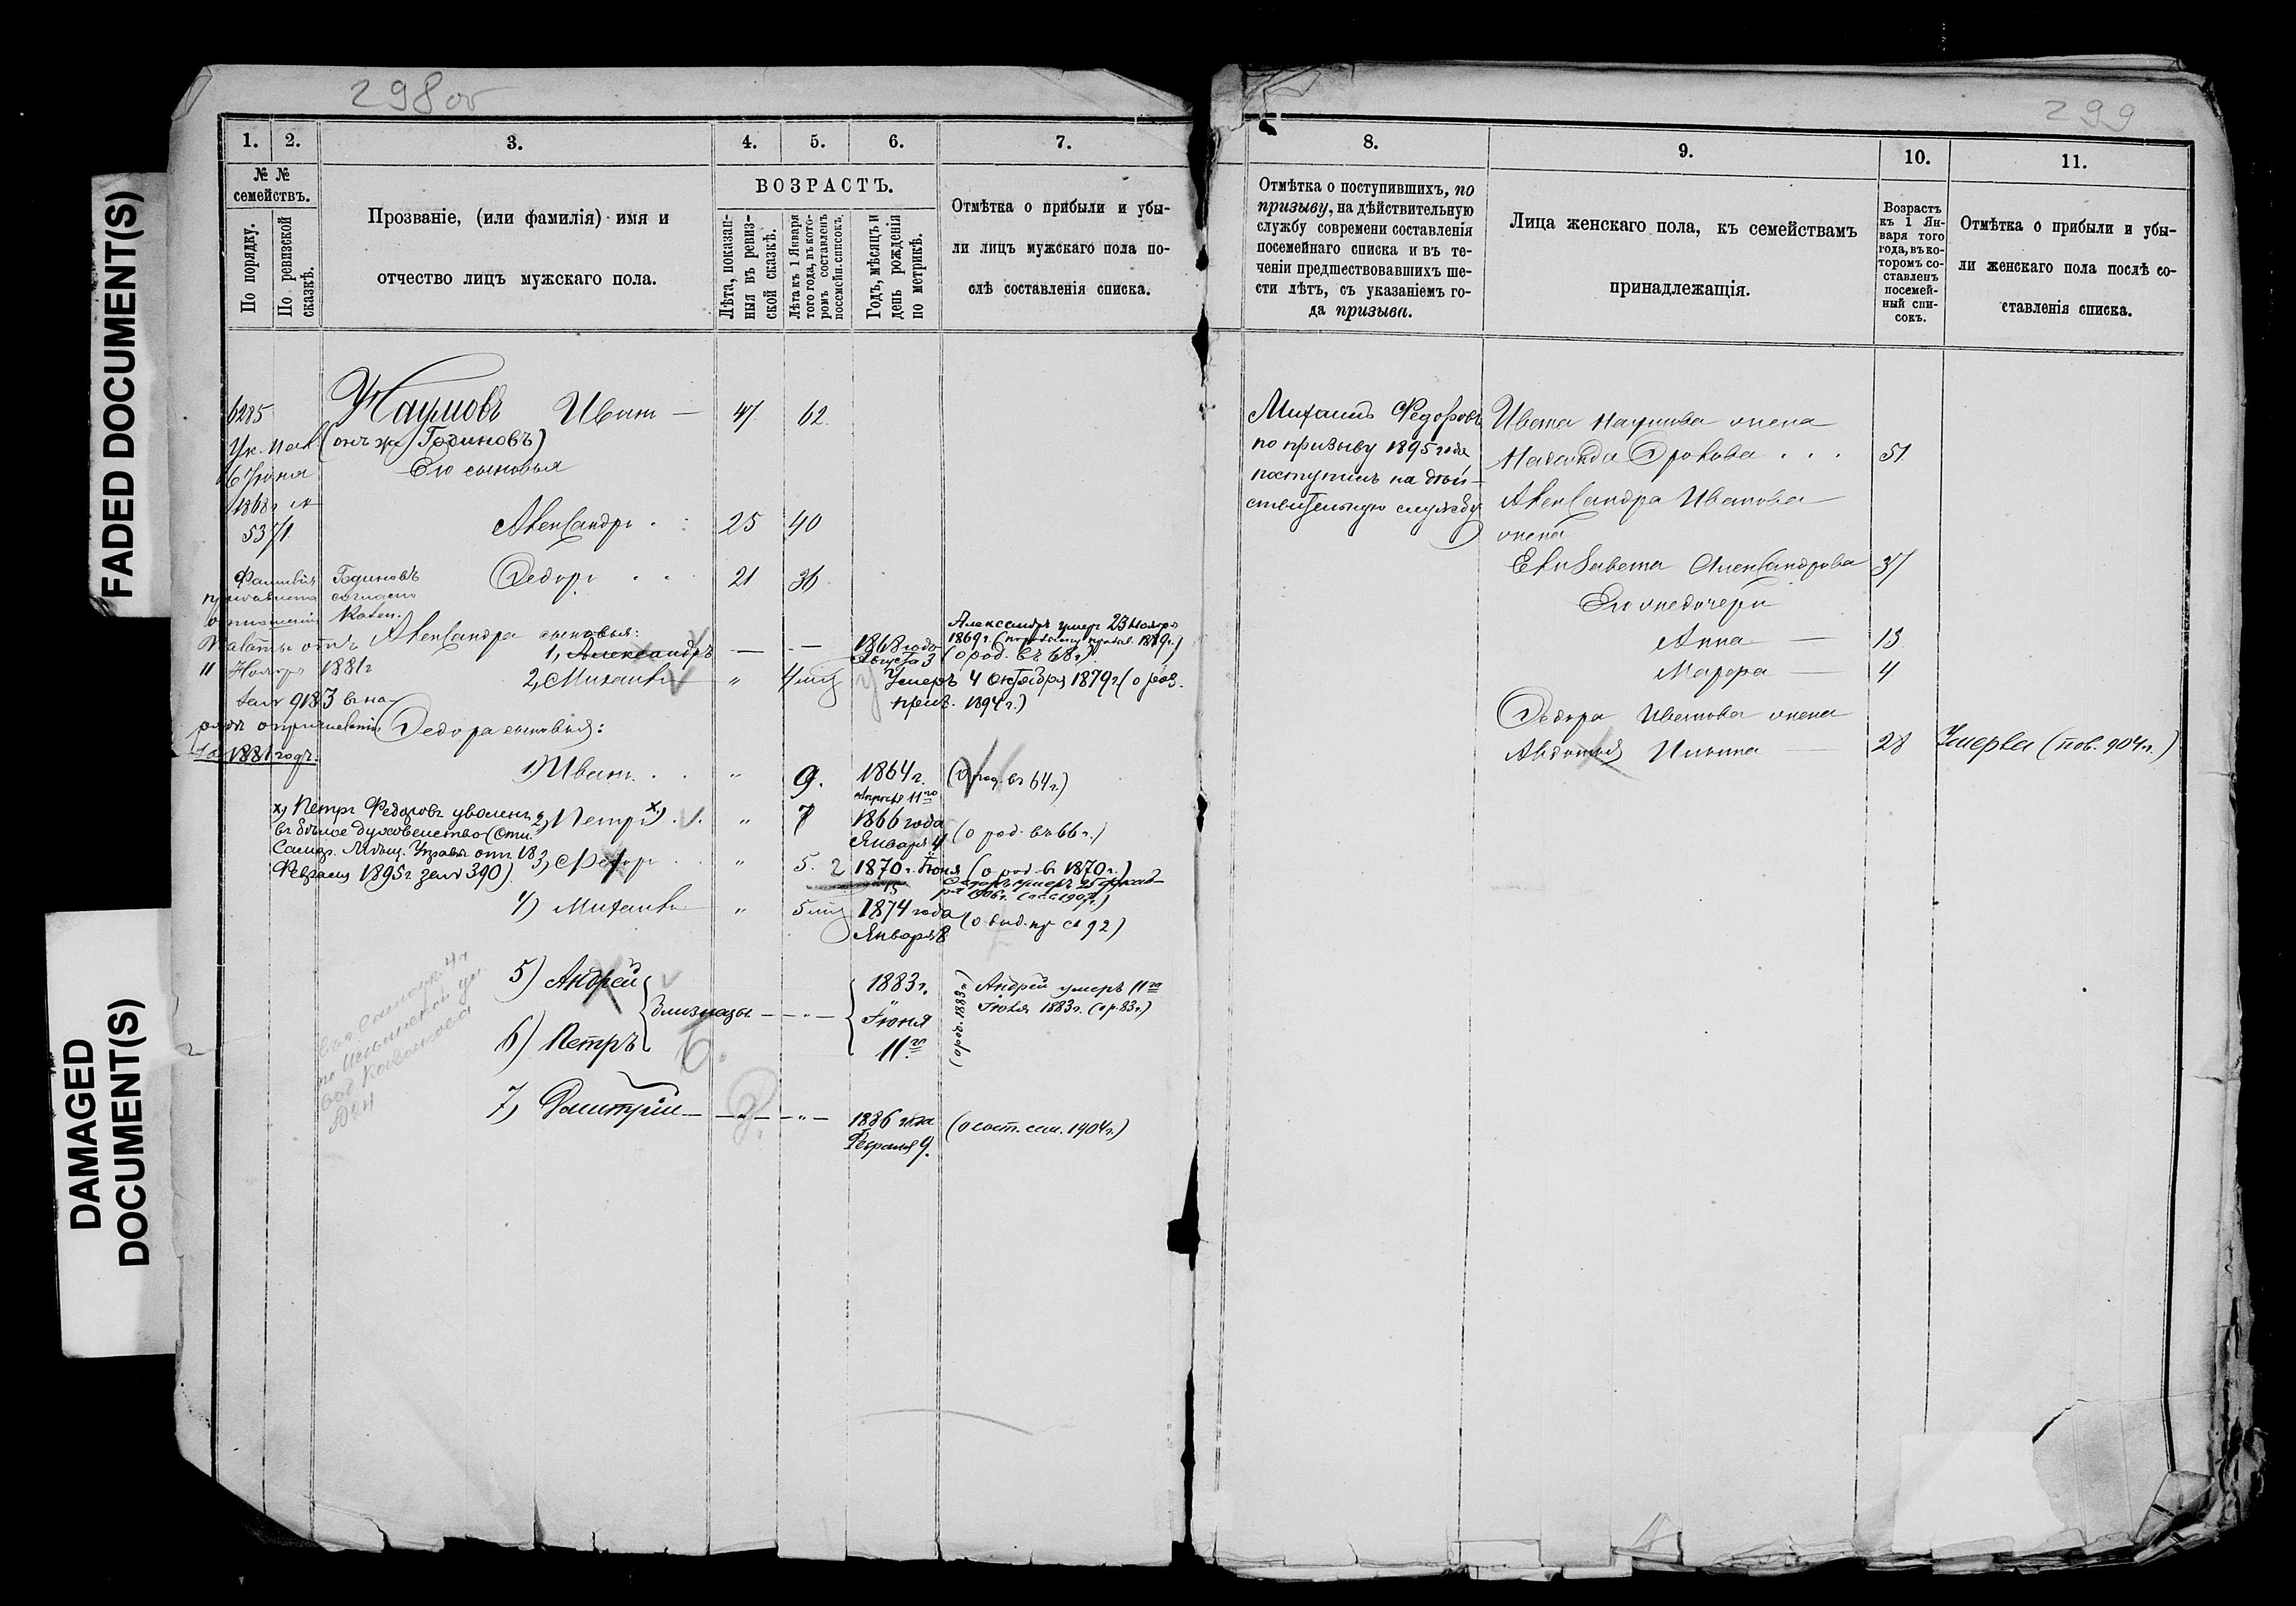 FADED DOCUMENT(S)
DAMAGED
DOCUMENT(S)
298 об
1.
2.
3.
4.
5.
6.
7.
№ №
семействъ.
По порядку.
По ревизской
сказкѣ.
Прозваніе, (или фамилія) имя и
отчество лицъ мужскаго пола.
ВОЗРАСТЪ.
Лѣта, показан-
ныя въ ревиз-
ской сказкѣ.
Лѣта къ 1 Января
того года, въ кото-
ромъ составленъ
посемейн. списокъ.
Годъ, мѣсяцъ и
день рожденія
по метрикѣ.
Отмѣтка о прибыли и убы-
ли лицъ мужскаго пола по-
слѣ составленія списка.
6285
Наумовъ Иванъ — 47 62.
(онъ же Годиновъ)
Его сыновья
6 Іюня
1868 г
5371
Александръ 25 40
Ѳедоръ 21 36
Фамилія Годиновъ
согласно
Казен.
Палаты отъ
11 Ноября 1881 г
9183
1881 годъ.
Александра сыновья:
1, Александръ — — 1868 года
Августа 3
Александръ умеръ 23 Ноября
1869 г.
(о род. въ 68 г.)
2, Михаилъ " 4 мѣс
Умеръ 4 Октября 1879 г (о роз.
призв. 1894 г.)
Ѳедора сыновья:
1) Иванъ " 9. 1864 г. (о род. въ 64 г.)
Апрѣля 11го
х) Петръ Федоровъ уволенъ
въ бѣлое духовенство (Отн.
Самар. Мѣщ. Управы отъ 18
Февраля 1895 г за № 390).
2, Петръ х) " 7 1866 года
Января 4 (о род. въ 66 г.)
3, Ѳедоръ " 5. 2 1870 г. Іюня (о род. въ 1870 г.)
15
4) Михаилъ " 5 мѣс 1874 года
Января 8
5) Андрей
близнецы — " —
6) Петръ
1883 г.
Іюня
11го
(о род. 1883 г)
Андрей умеръ 11го
Іюля 1883 г. (о р. 83 г.)
7, Дмитрій — " — " — 1886 года
Февраля 9.
(о сост. сем. 1904 г.)
299
8.
9.
10.
11.
Отмѣтка о поступившихъ, по
призыву, на дѣйствительную
службу современи составленія
посемейнаго списка и въ те-
ченіи предшествовавшихъ ше-
сти лѣтъ, съ указаніемъ го-
да призыва.
Лица женскаго пола, къ семействамъ
принадлежащія.
Возрастъ
къ 1 Ян-
варя того
года, въ ко-
торомъ со-
ставленъ
посемей-
ный спи-
сокъ.
Отмѣтка о прибыли и убы-
ли женскаго пола послѣ со-
ставленія списка.
Михаилъ Федоровъ
по призыву 1895 года
поступилъ на дѣй-
ствительную службу
Ивана Наумова жена
51
Александра Иванова
жена
Елизавета Александрова 37
Его же дочери
Анна — 13
Марѳа — 4
Ѳедора Иванова жена
Авдотья Ильина — 28 Умерла (пов. 904 г.)